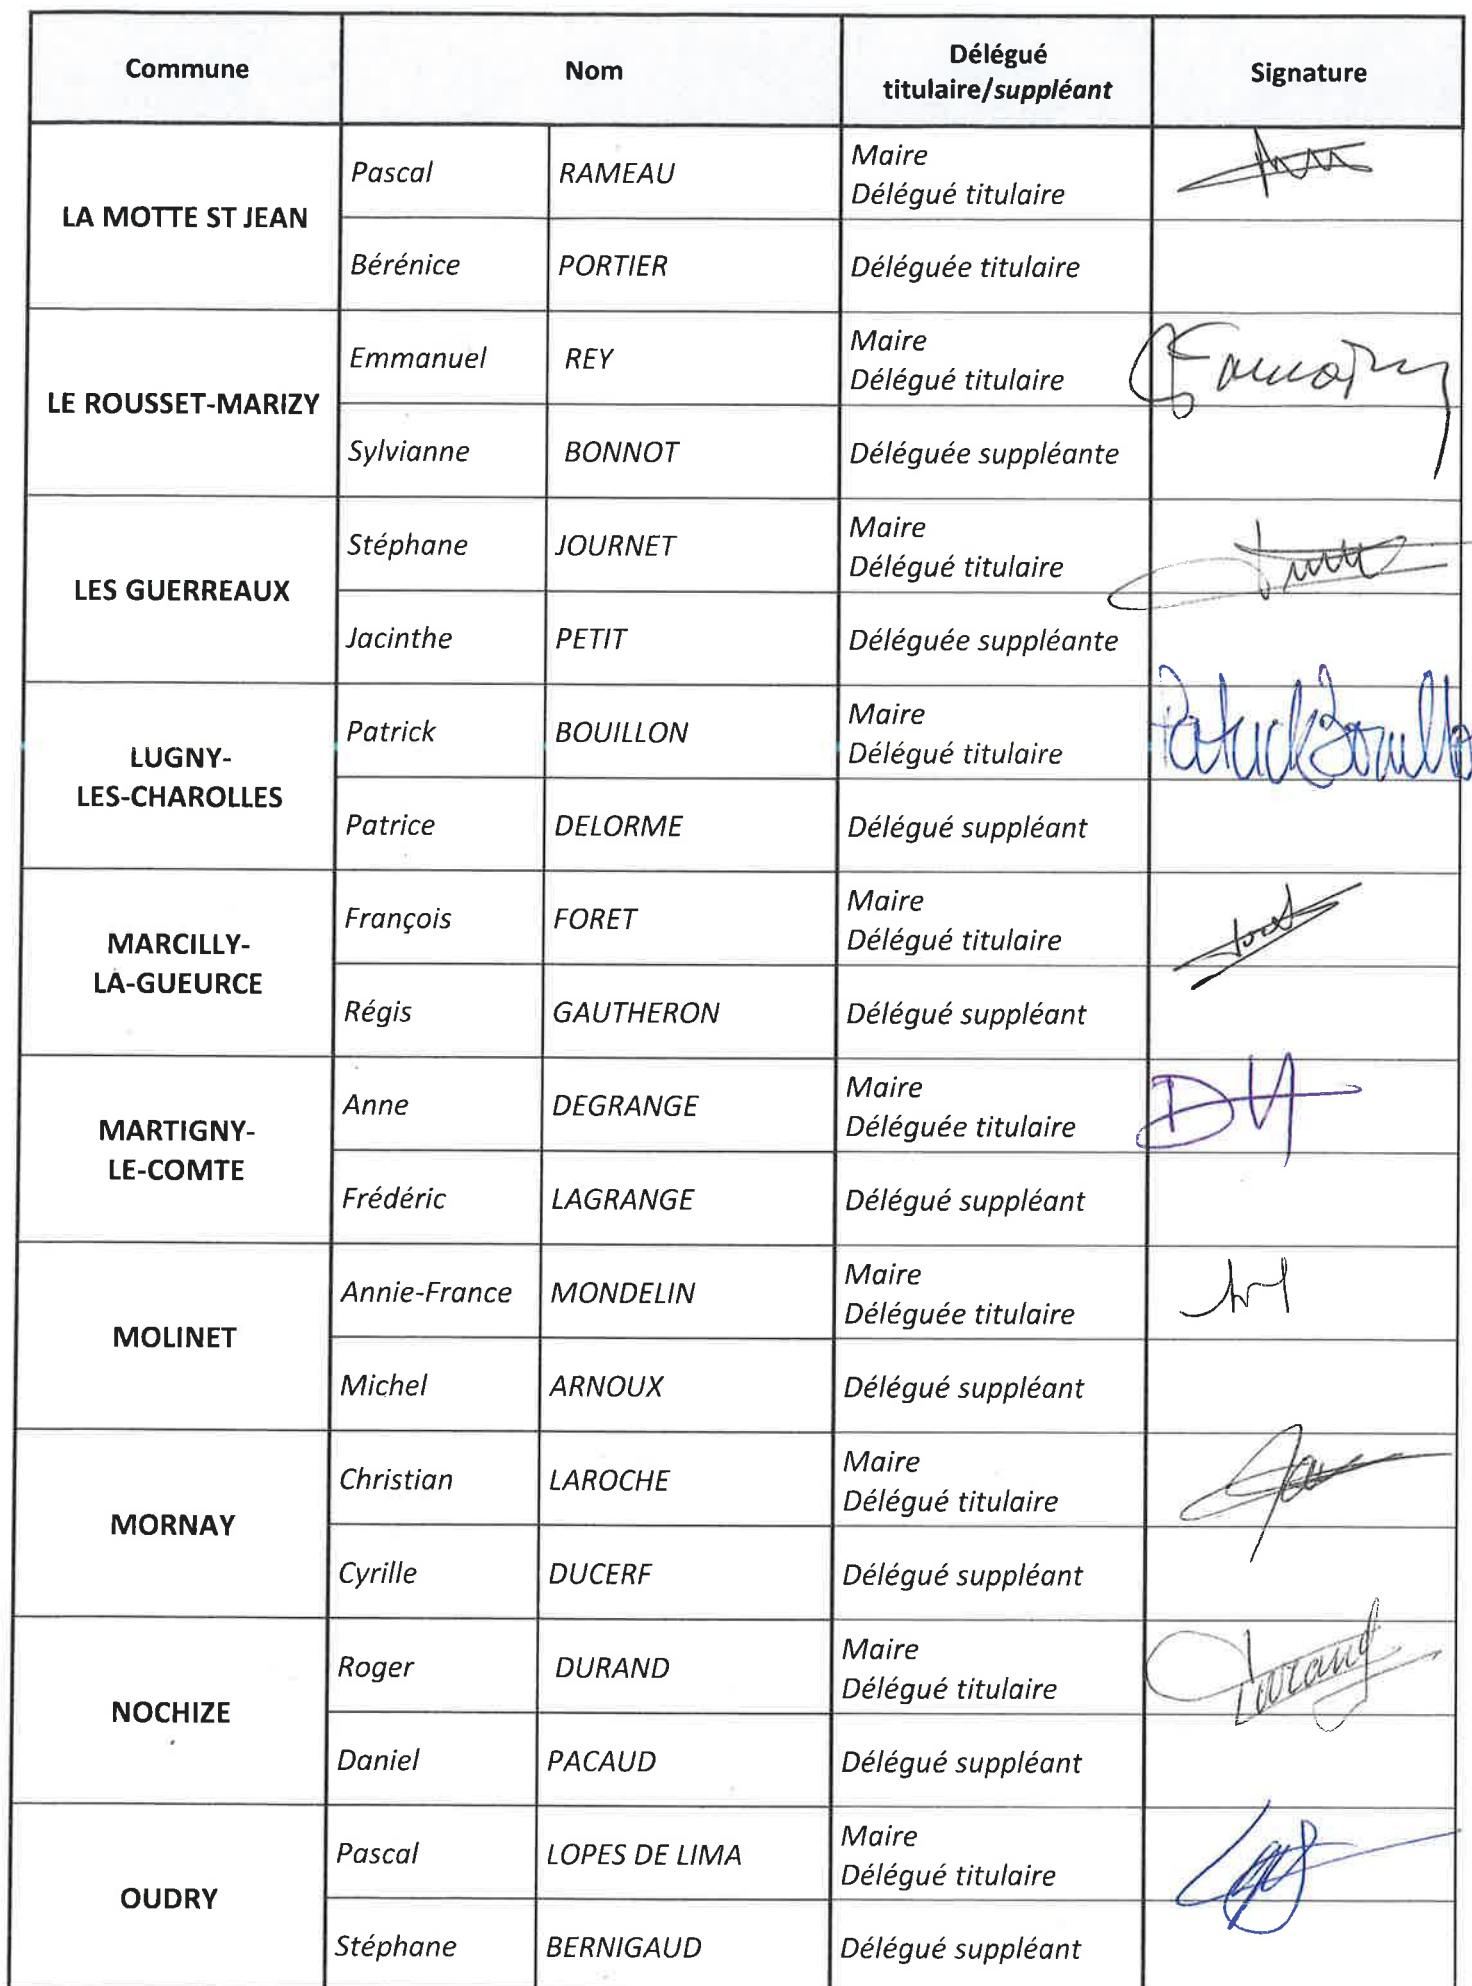 Commune Nom Délégué titulaire/suppléant Signature
LA MOTTE ST JEAN
Pascal RAMEAU Maire
Délégué titulaire
Bérénice PORTIER Déléguée titulaire
LE ROUSSET-MARIZY
Emmanuel REY Maire
Délégué titulaire
Sylvianne BONNOT Déléguée suppléante
LES GUERREAUX
Stéphane JOURNET Maire
Délégué titulaire
Jacinthe PETIT Déléguée suppléante
LUGNY-
LES-CHAROLLES
Patrick BOUILLON Maire
Délégué titulaire
Patrick Bouillon
Patrice DELORME Délégué suppléant
MARCILLY-
LA-GUEURCE
François FORET Maire
Délégué titulaire
Régis GAUTHERON Délégué suppléant
MARTIGNY-
LE-COMTE
Anne DEGRANGE Maire
Déléguée titulaire
Frédéric LAGRANGE Délégué suppléant
MOLINET
Annie-France MONDELIN Maire
Déléguée titulaire
Michel ARNOUX Délégué suppléant
MORNAY
Christian LAROCHE Maire
Délégué titulaire
Cyrille DUCERF Délégué suppléant
NOCHIZE
Roger DURAND Maire
Délégué titulaire
Durand
Daniel PACAUD Délégué suppléant
OUDRY
Pascal LOPES DE LIMA Maire
Délégué titulaire
Stéphane BERNIGAUD Délégué suppléant